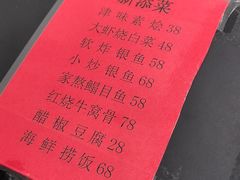 新添菜
津味素烩38
大虾烧白菜48
软炸银鱼58
小炒银鱼68
家熬鲳目鱼58
红烧牛窝骨78
醋椒豆腐28
海鲜捞饭68